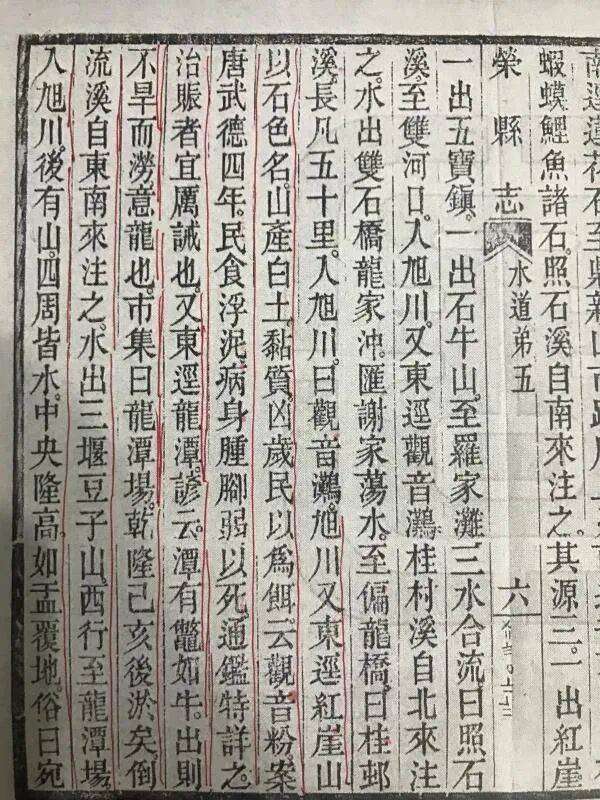 蝦蟆鯉魚諸石。照石溪自南來注之。其源三。一出紅崖
榮縣志
水道弟五
六
一出五寶鎮。一出石牛山。至羅家灘三水合流曰照石
溪至雙河口。入旭川。又東逕觀音灘。桂村溪自北來注
之。水出雙石橋龍家沖。匯謝家蕩水。至偏龍橋。曰桂邨
溪。長凡五十里。入旭川。曰觀音灘。旭川又東逕紅崖山
以石色名。山產白土。黏質。凶歲民以為餌。云觀音粉。案
唐武德四年。民食浮泥。病身腫腳弱以死通鑑特詳之。
治賑者宜厲誡也。又東逕龍潭。諺云。潭有鼈如牛。出則
不旱而澇意龍也。市集曰龍潭場。乾隆己亥後淤矣。倒
流溪自東南來注之。水出三堰豆子山。西行至龍潭場
入旭川。後有山。四周皆水。中央隆高。如盂覆地。俗曰宛